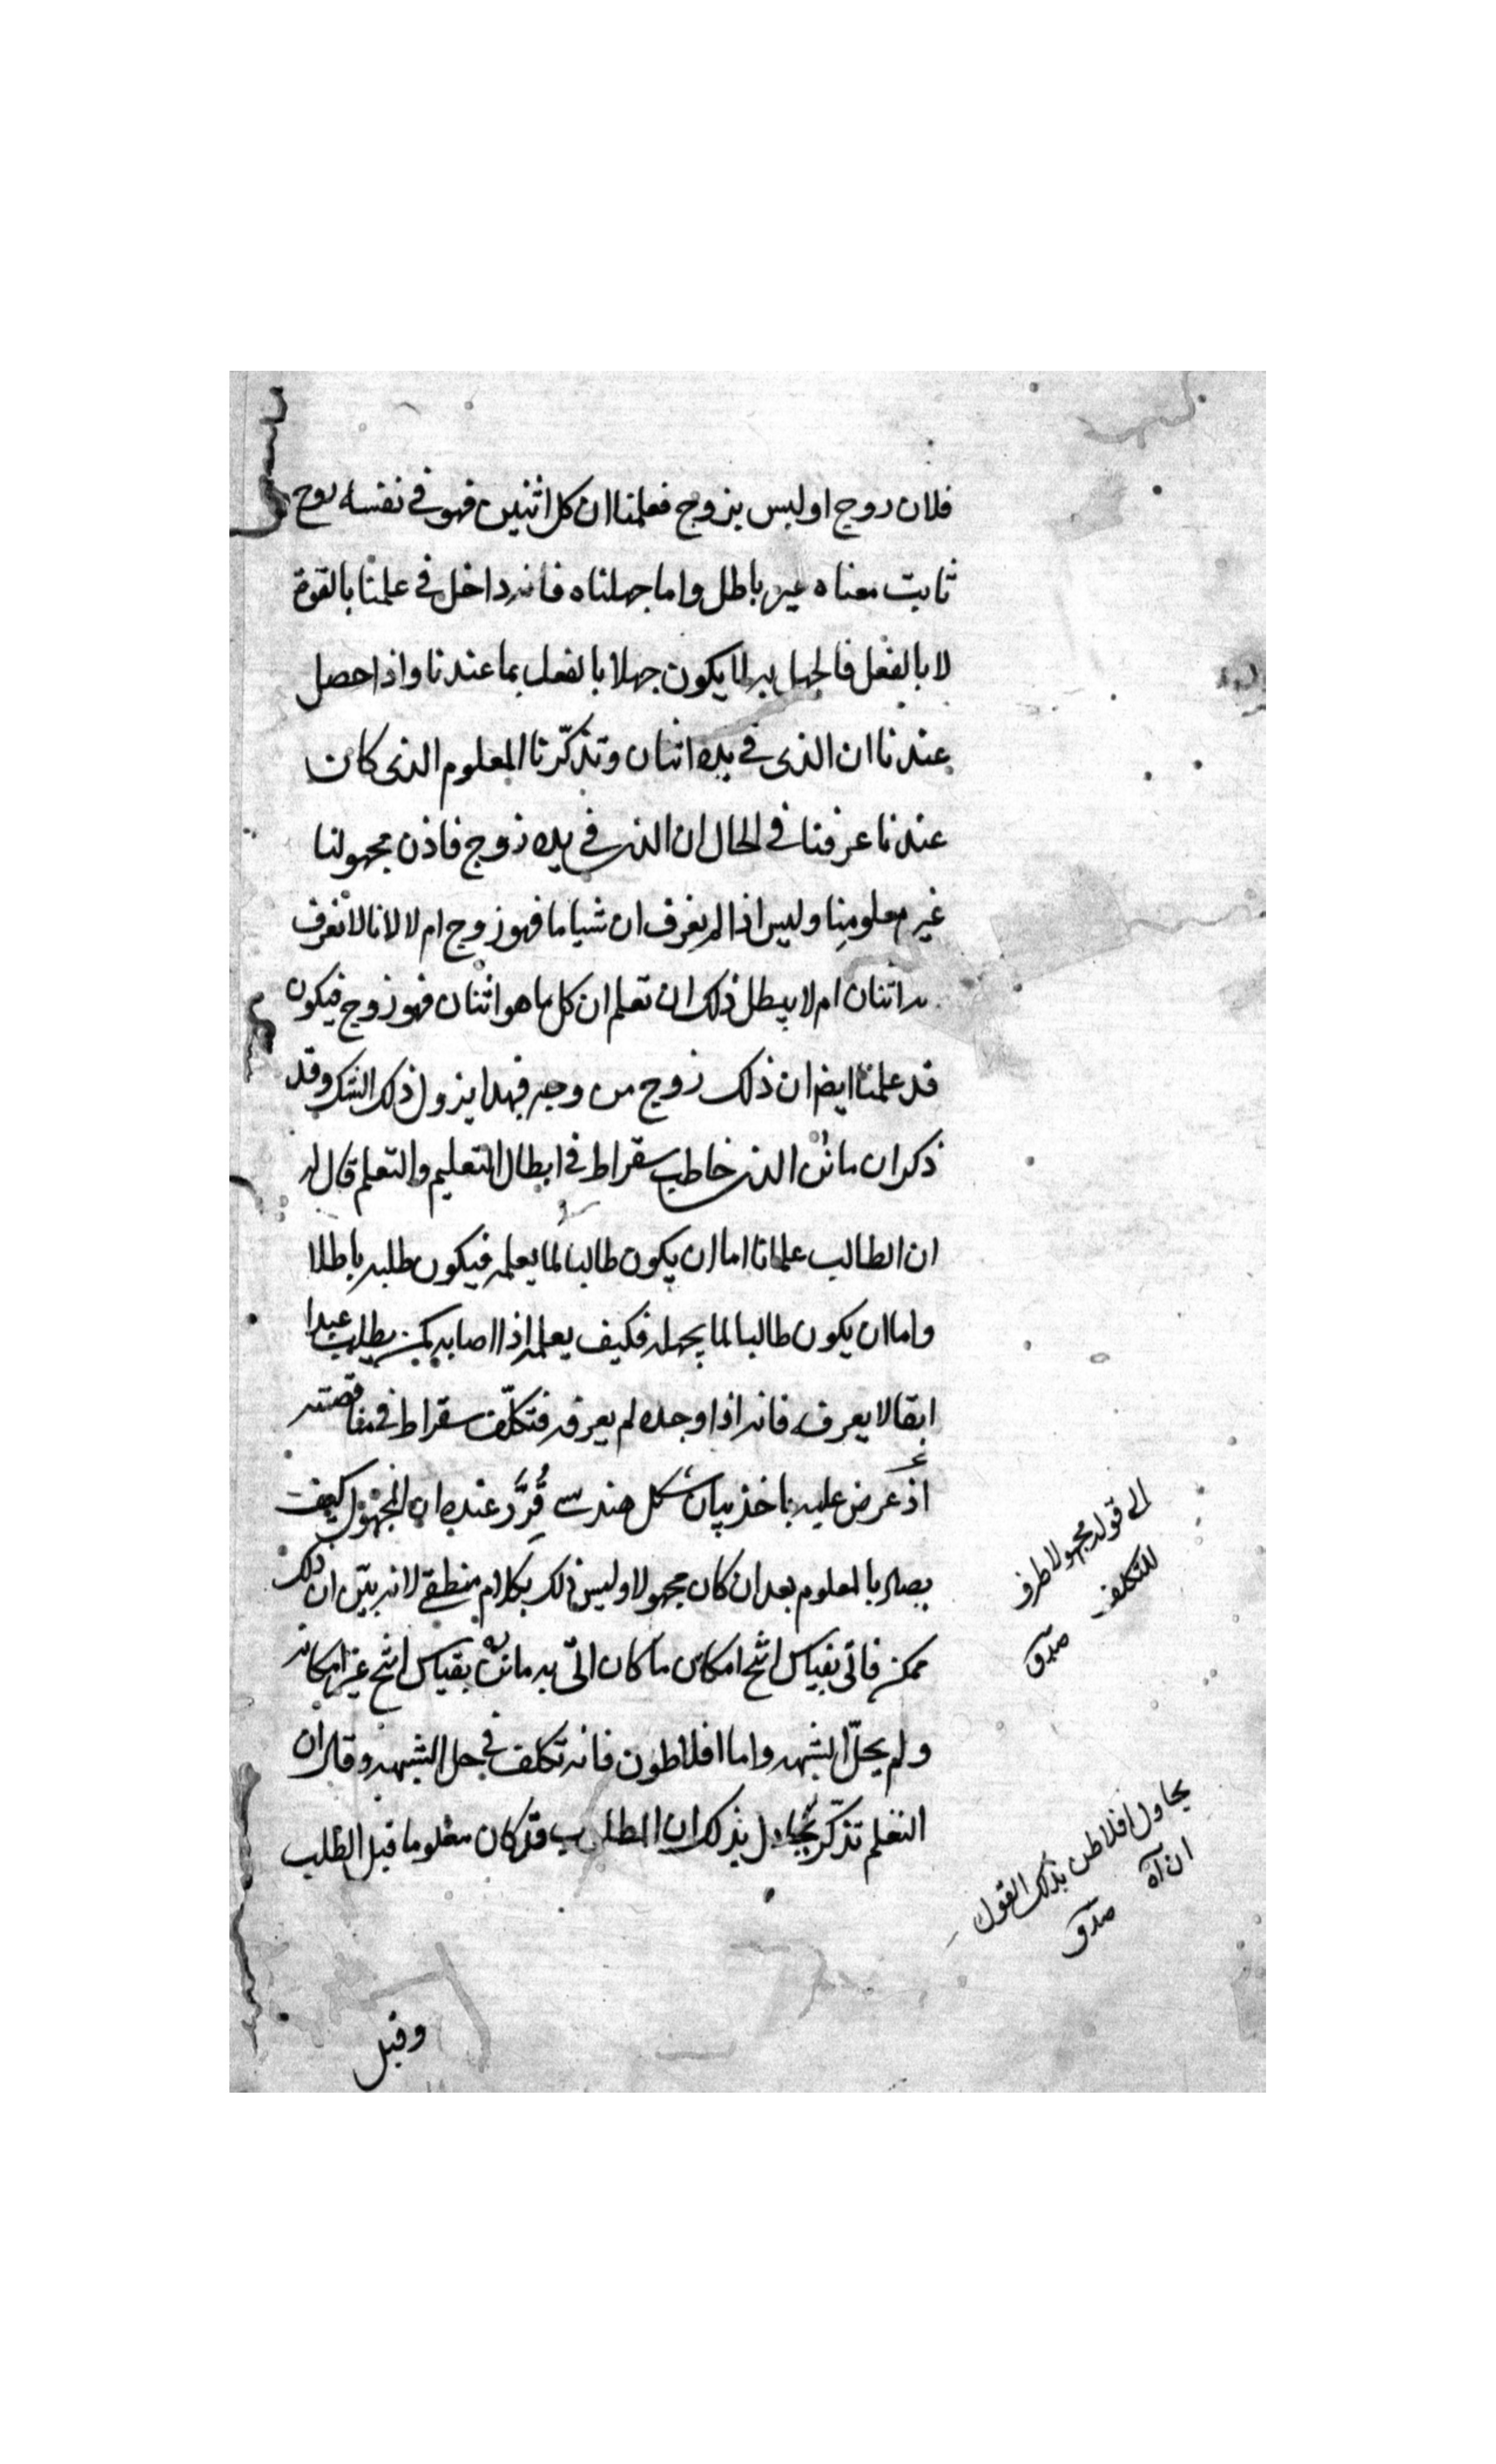 فلان زوج او ليس بزوج فعلمنا ان كل اثنين فهو في نفسه زوج
ثابت معناه غير باطل واما جهلناه فانه داخل في علمنا بالقوة
لا بالفعل فالجهل به لا يكون جهلا بالفعل بما عندنا واذا حصل
عندنا ان الذى في يده اثنان وتذكّرنا المعلوم الذى كان
عندنا عرفنا في الحال ان الذى في يده زوج فاذن مجهولنا
غير معلومنا وليس اذا لم نعرف ان شيا ما فهو زوج ام لا لانا لا نعرف
انه اثنان ام لا يبطل ذلك ان تعلم ان كل ما هو اثنان فهو زوج فيكون
قد علمنا ايضا ان ذلك زوج من وجه فبهذا يزول ذلك الشك وقد
ذكر ان مانن الذى خاطب سقراط في ابطال التعليم والتعلم قال له
ان الطالب علما ما اما ان يكون طالبا لما يعلمه فيكون طلبه باطلا
واما ان يكون طالبا لما يجهله فكيف يعلمه اذا اصابه كمن يطلب عبدا
ابقا لا يعرفه فانه اذا وجده لم يعرفه فتكلّف سقراط في مناقضته
اذ عرض عليه ماخذ بيان شكل هندسى قُرِّر عنده ان المجهول كيف
يصاد بالمعلوم بعد ان كان مجهولا وليس ذلك بكلام منطقى لانه بيّن ان ذلك
ممكن فاتى بقياس انتج امكان ما كان اتى به مانن بقياس انتج غير امكانه
ولم يحلّ الشبهه واما افلاطون فانه تكلف في حل الشبهه وقال ان
التعلم تذكّر يحاول بذلك ان المطلوب قد كان معلوما قبل الطلب
وقبل
الى قوله مجهولا طرف
للتكلف
يحاول افلاطن بذلك القول
ان اه